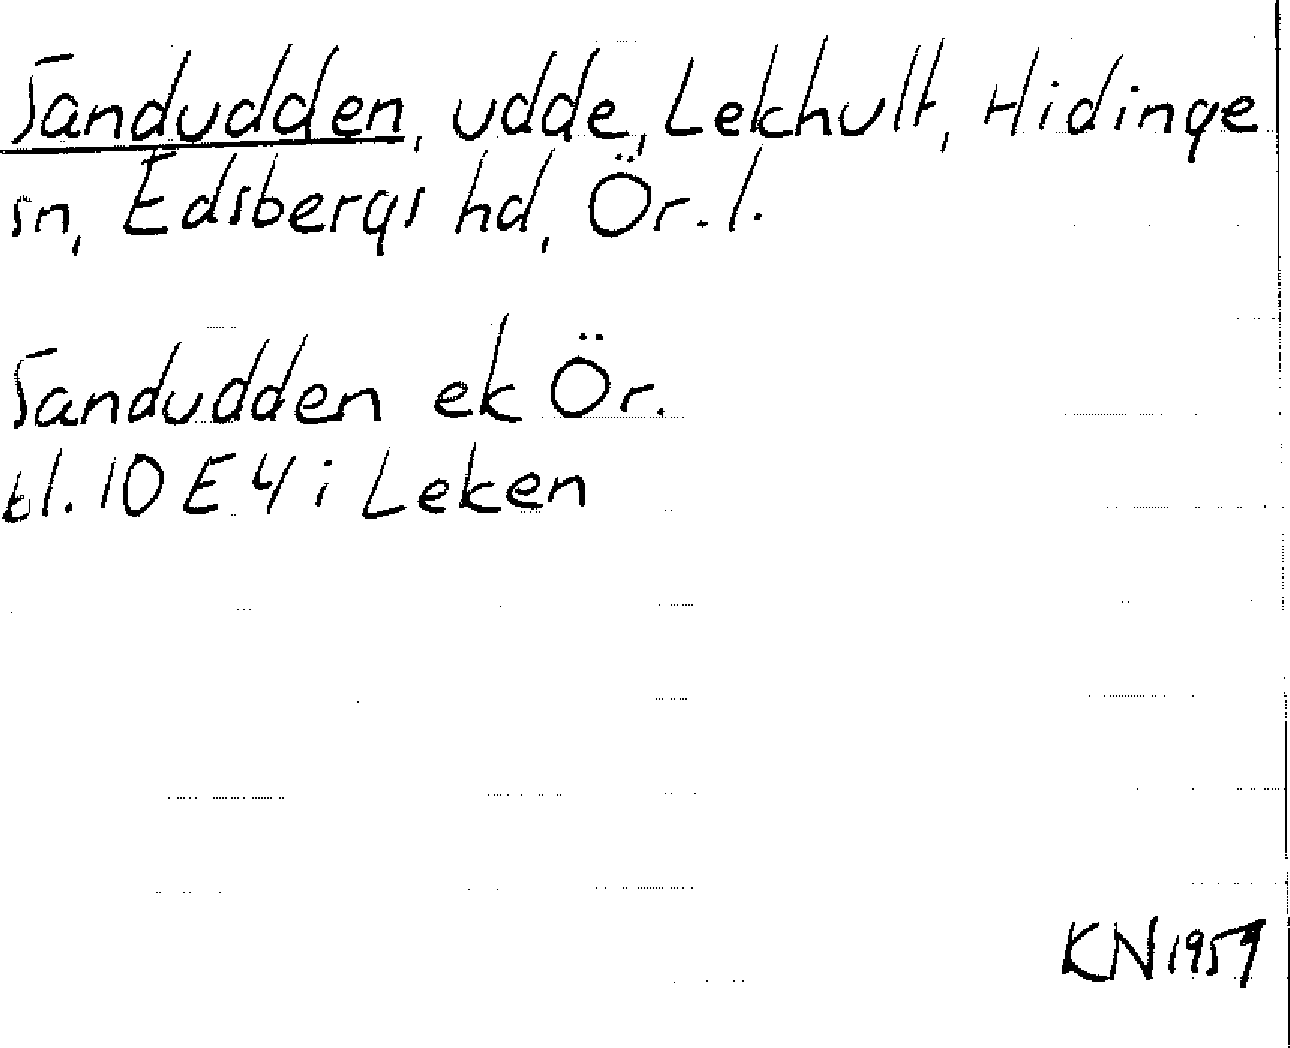 Sandudden, udde, Lekhult, Hidinge
sn, Edsbergs hd, Ör. l.
Sandudden ek Ör.
tl. 10 E 4 i Leken
KN 1957